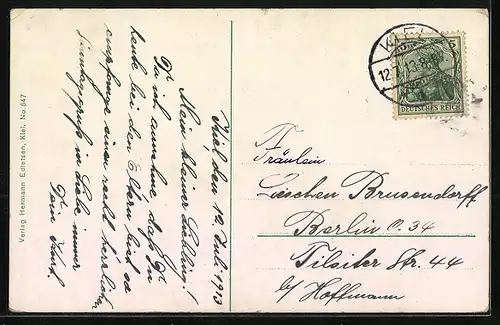 Kiel, den 12. Juli 1913
Mein kleiner Liebling!
Da ich annehme, daß Du
heute bei den Eltern bist so
empfange einen recht herzlichen
Sonntagsgruß in Liebe immer
Dein Kurt.
Verlag Hermann Edlefsen, Kiel, No. 647
KIEL
12.7.13.8-9N
5
DEUTSCHES REICH
Fräulein
Lieschen Brusendorff
Berlin O. 34
Tilsiter Str. 44
b/ Hoffmann